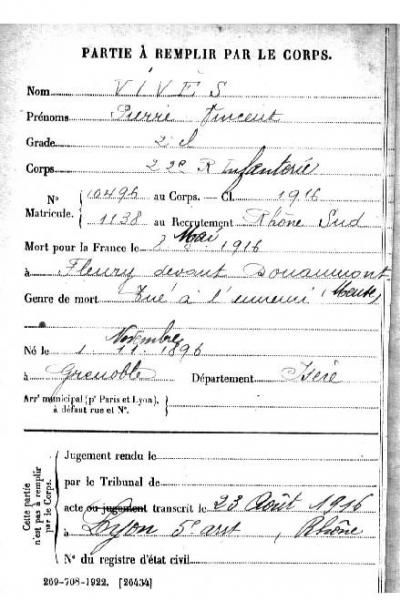 PARTIE À REMPLIR PAR LE CORPS.
Nom VIVÈS
Prénoms Pierre Vincent
Grade 2e
Corps 22e R Infanterie
Nº 10496 au Corps. — Cl. 1916
Matricule. 1138 au Recrutement Rhône Sud
Mort pour la France le Mai 1916
à Fleury devant Douaumont
Genre de mort Tué à l'ennemi (Meuse)
Novembre
Né le 1 11 1896
à Grenoble Département Isère
Arrt municipal (pr Paris et Lyon),
à défaut rue et Nº.
Cette partie
n'est pas à remplir
par le Corps.
Jugement rendu le
par le Tribunal de
acte ou jugement transcrit le 23 Août 1916
à Lyon 5e arrt, Rhône
Nº du registre d'état civil
269-708-1922. [26434]